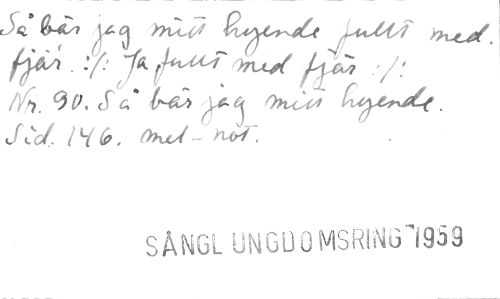 Så bär jag mitt hyende fullt med.
fjär. :/: Ja fullt med fjär :/:
Nr. 90. Så bär jag mitt hyende.
Sid. 146. mel-not.
SÅNGL UNGDOMSRING 1959